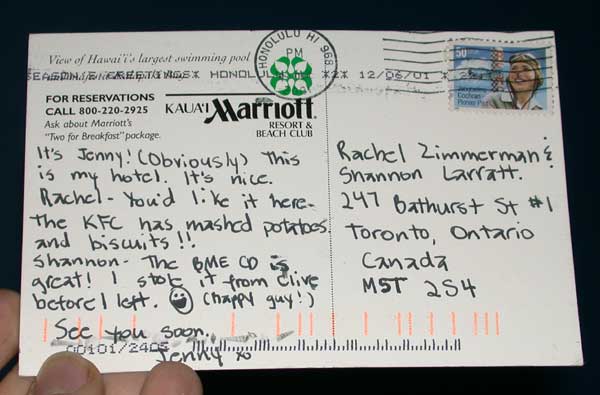 View of Hawai'i's largest swimming pool
SEASON'S GREETINGS* HONOLULU *2* 12/06/01 *
HONOLULU HI 968
PM
50
Jacqueline
Cochran
Pioneer Pilot
FOR RESERVATIONS
CALL 800-220-2925
Ask about Marriott's
"Two for Breakfast" package.
KAUA'I Marriott
RESORT &
BEACH CLUB
It's Jenny! (Obviously) This
is my hotel. It's nice.
Rachel - You'd like it here-
the KFC has mashed potatoes
and biscuits!!
Shannon- The BME CD is
great! I stole it from Clive
before I left. (happy guy!)
See you soon.
Jenny xo
00101/2405
Rachel Zimmerman &
Shannon Larratt.
247 Bathurst St #1
Toronto, Ontario
Canada
M5T 2S4